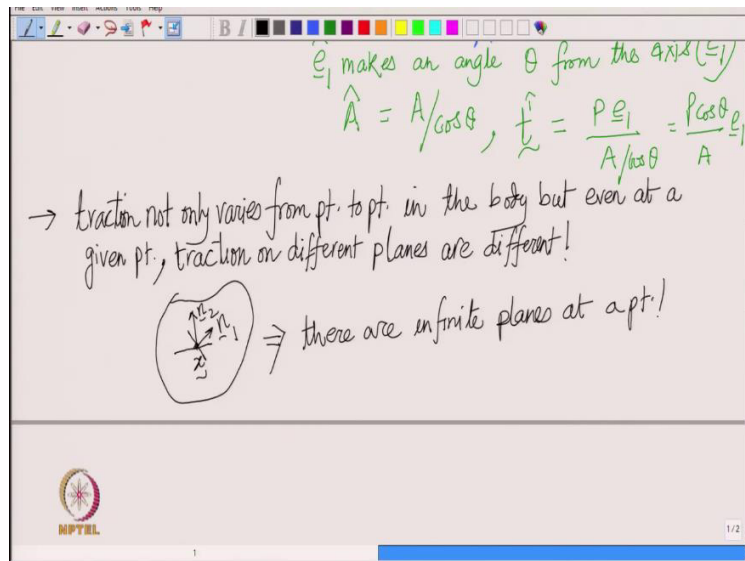 File Edit View Insert Actions Tools Help
B I
ê₁ makes an angle θ from the axis (e₁)
Â = A/cosθ, t̂ = P e₁ / A/cosθ = Pcosθ / A e₁
→ traction not only varies from pt. to pt. in the body but even at a
given pt., traction on different planes are different!
n₂
n₁
x
⇒ there are infinite planes at a pt.!
NPTEL
1/2
1